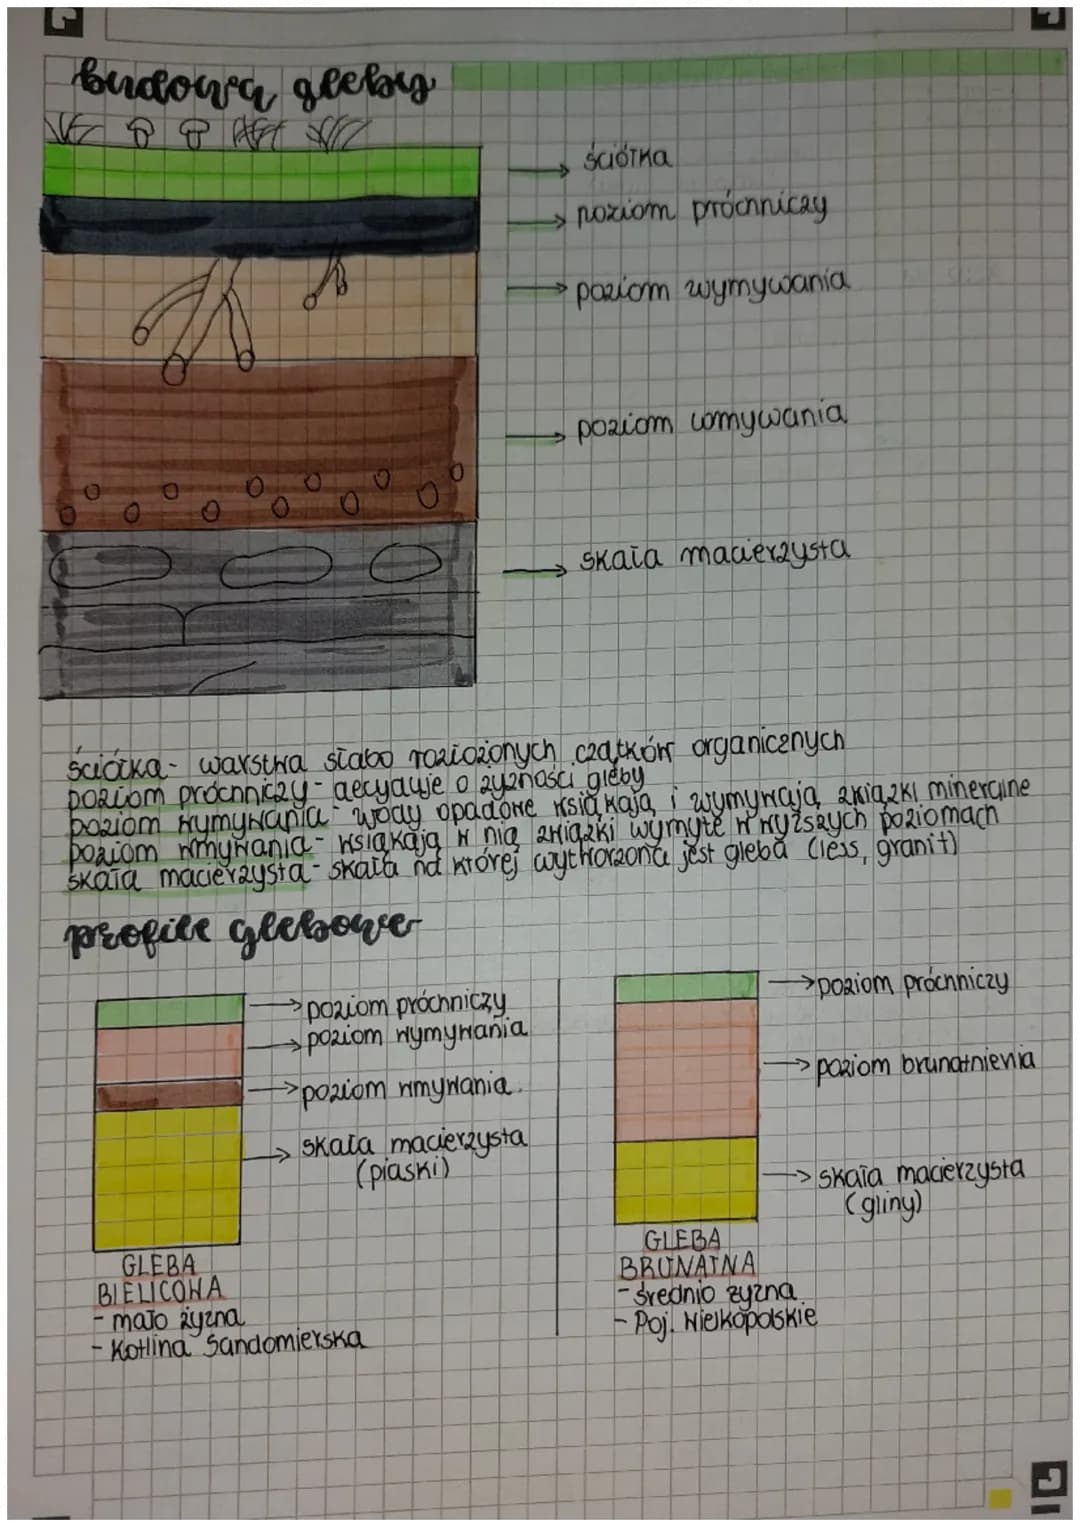 budowa gleby
ściółka
poziom próchniczy
poziom wymywania
poziom wmywania
skała macierzysta
ściółka - warstwa słabo rozłożonych cząstków organicznych
poziom próchniczy - decyduje o żyzności gleby
poziom wymywania - wody opadowe wsiąkają i wymywają związki mineralne
poziom wmywania - wsiąkają w nią związki wymyte w wyższych poziomach
skała macierzysta - skała na której wytworzona jest gleba (less, granit)
profile glebowe
poziom próchniczy
poziom wymywania
poziom wmywania
skała macierzysta
(piaski)
GLEBA
BIELICOWA
- mało żyzna
- Kotlina Sandomierska
poziom próchniczy
poziom brunatnienia
skała macierzysta
(gliny)
GLEBA
BRUNATNA
- średnio żyzna
- Poj. Wielkopolskie